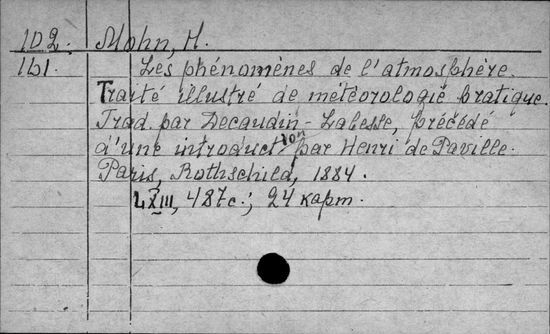 102. Mohn, H.
161. Les phénomènes de l'atmosphère.
Traité illustré de météorologie pratique.
Trad. par Decaudin-Labesse, précédé
d'une introduction par Henri de Paville.
Paris, Rothschild, 1884.
LXIII, 487 с.; 24 карт.